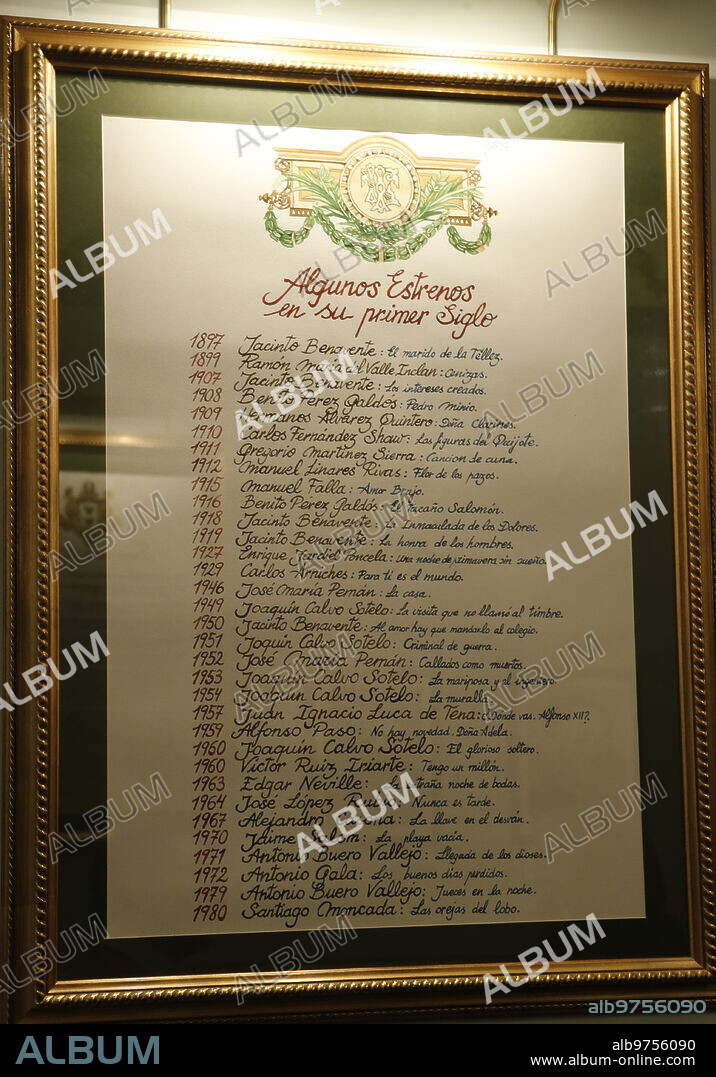 Algunos Estrenos
en su primer Siglo
1897 Jacinto Benavente: El marido de la Téllez.
1899 Ramón María del Valle Inclan: Cenizas.
1907 Jacinto Benavente: Los intereses creados.
1908 Benito Pérez Galdós: Pedro Minio.
1909 Hermanos Alvarez Quintero: Doña Clarines.
1910 Carlos Fernández Shaw: Las figuras del Quijote.
1911 Gregorio Martínez Sierra: Cancion de cuna.
1912 Manuel Linares Rivas: Flor de los pazos.
1915 Manuel Falla: Amor Brujo.
1916 Benito Pérez Galdós: El tacaño Salomón.
1918 Jacinto Benavente: La Inmaculada de los Dolores.
1919 Jacinto Benavente: La honra de los hombres.
1927 Enrique Jardiel Poncela: una noche de primavera sin sueño.
1929 Carlos Arniches: Para ti es el mundo.
1946 José María Pemán: La casa.
1949 Joaquín Calvo Sotelo: La visita que no llamó al timbre.
1950 Jacinto Benavente: Al amor hay que mandarlo al colegio.
1951 Joquín Calvo Sotelo: Criminal de guerra.
1952 José María Pemán: Callados como muertos.
1953 Joaquín Calvo Sotelo: La mariposa y el ingeniero.
1954 Joaquín Calvo Sotelo: La muralla.
1957 Juan Ignacio Luca de Tena: ¿Dónde vas. Alfonso XII?.
1959 Alfonso Paso: No hay novedad. Doña Adela.
1960 Joaquín Calvo Sotelo: El glorioso soltero.
1960 Víctor Ruiz Iriarte: Tengo un millón.
1963 Edgar Neville: La extraña noche de bodas.
1964 José López Rubio: Nunca es tarde.
1967 Alejandro Casona: La llave en el desván.
1970 Jaime Salom: La playa vacía.
1971 Antonio Buero Vallejo: Llegada de los dioses.
1972 Antonio Gala: Los buenos días perdidos.
1979 Antonio Buero Vallejo: Jueces en la noche.
1980 Santiago Moncada: Las orejas del lobo.
alb9756090
ALBUM
alb9756090
www.album-online.com